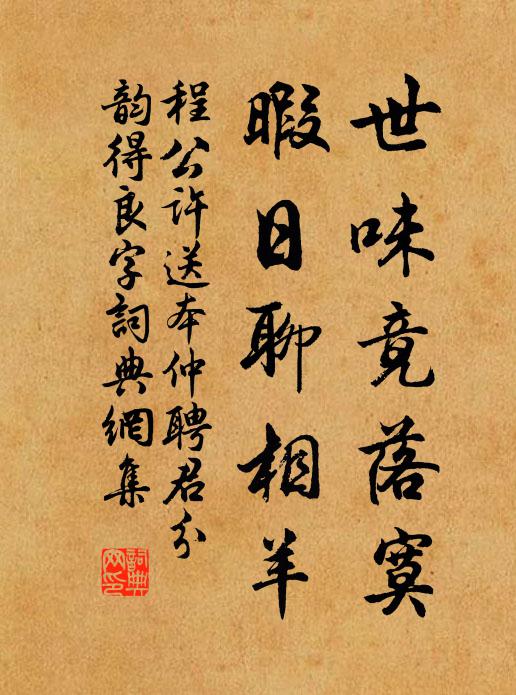 世味竟落寞
暇日聊相羊
程公許送李仲聘君分
韵得良字詞典網集
詞典網印